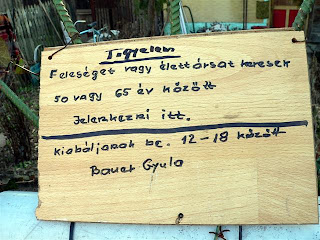 Figyelem
Feleséget vagy élettársat keresek
50 vagy 65 év között
Jelentkezni itt.
kiabáljanak be. 12-18 között
Bauer Gyula